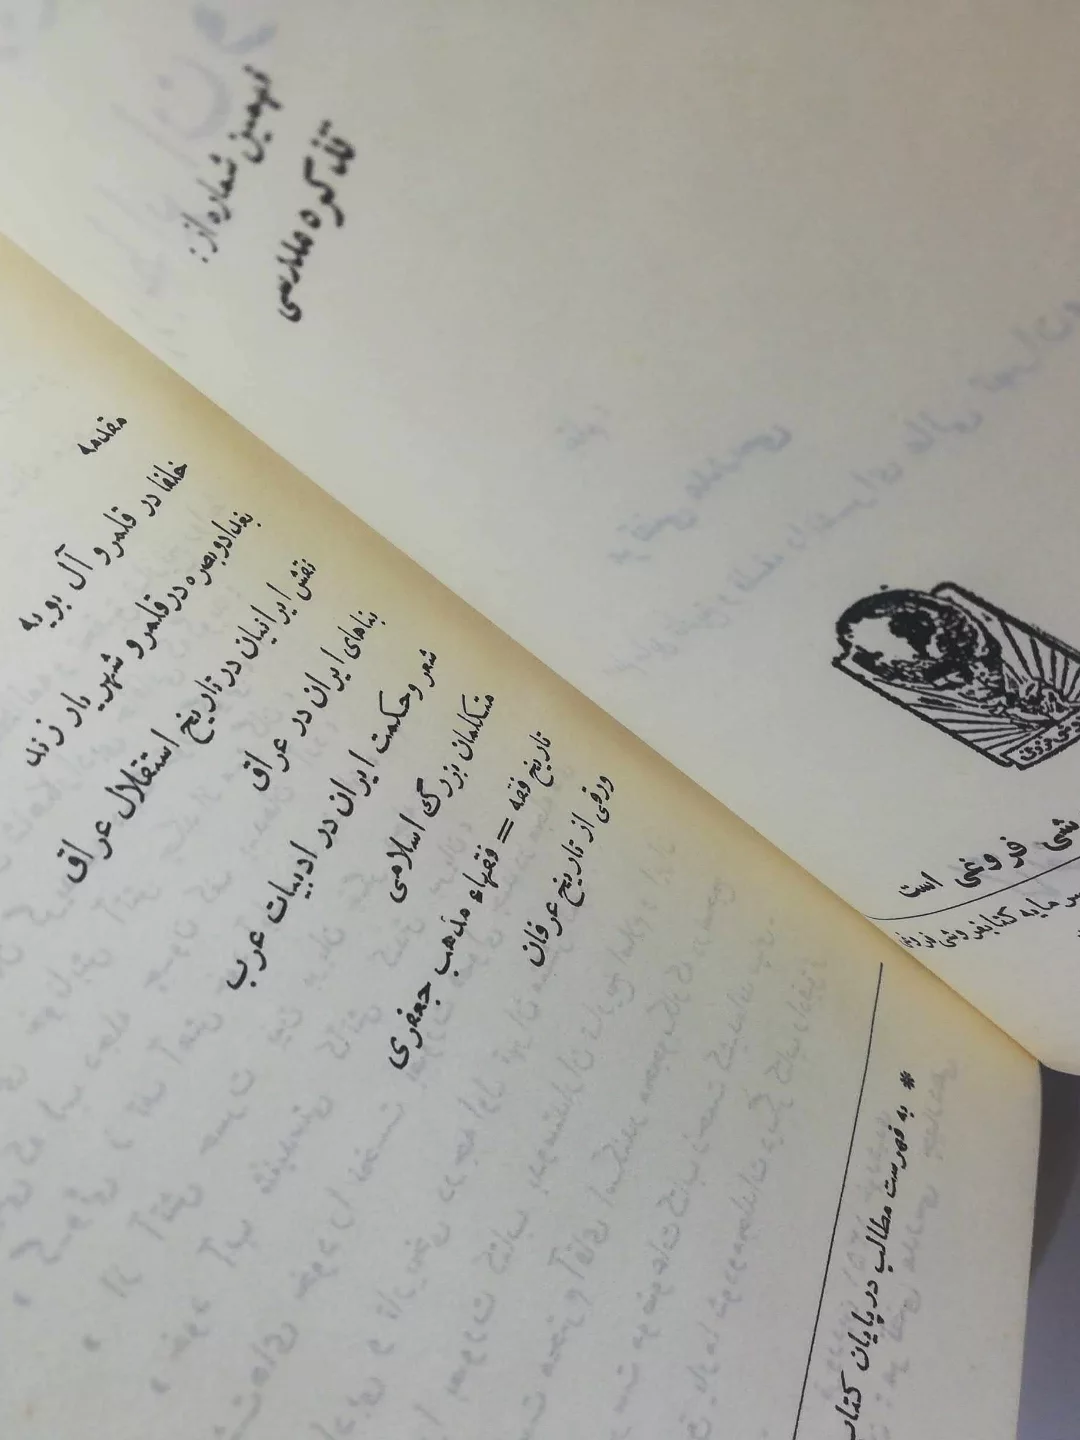 نهمین شماره از:
تذکره مدارسی
شی فروغی است
سرمایه کتابفروشی فروغی
مقدمه
خلفا در قلمرو آل بویه
بغداد و بصره در قلمرو شهریار زند
نقش ایرانیان در تاریخ استقلال عراق
بناهای ایران در عراق
شعر و حکمت ایران در ادبیات عرب
متکلمان بزرگ اسلامی
تاریخ فقه = فقهاء مذهب جعفری
ورقی از تاریخ عرفان
* به فهرست مطالب در پایان کتاب